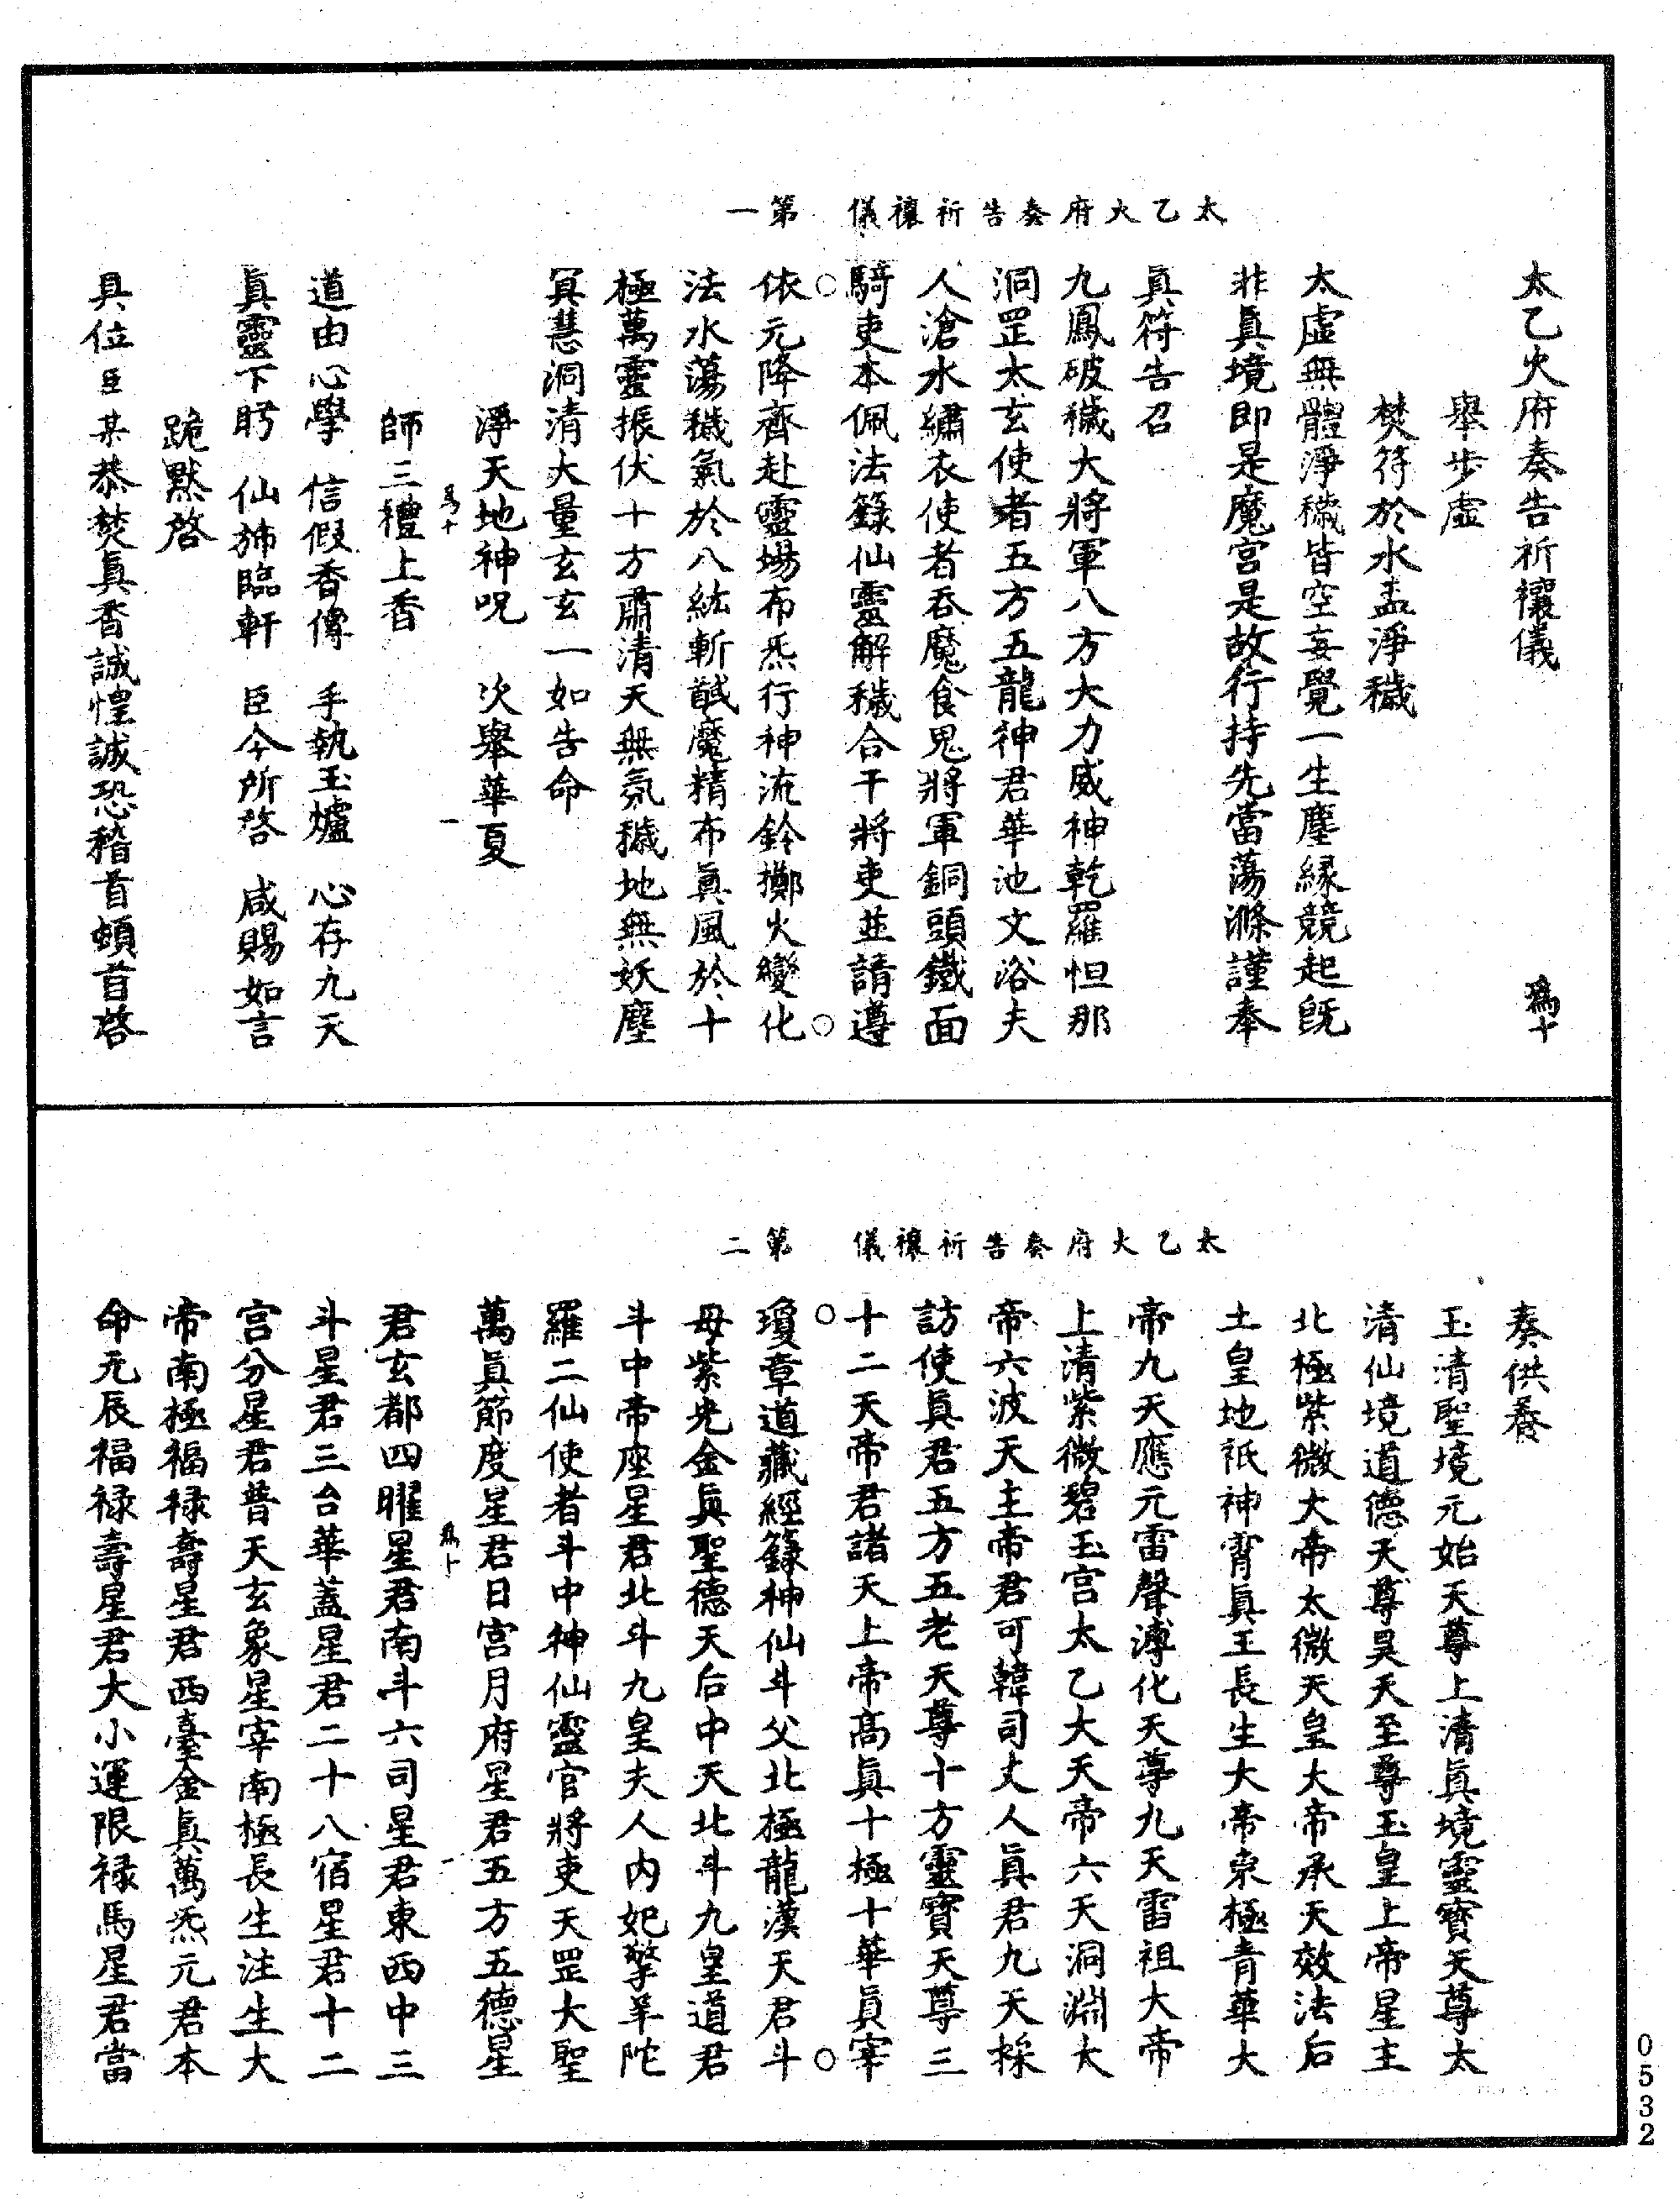 太乙火府奏告祈禳儀　第一
太乙火府奏告祈禳儀　爲十
舉步虛
焚符於水盂淨穢
太虛無體淨穢皆空妄覺一生塵緣競起旣
非眞境即是魔宮是故行持先當蕩滌謹奉
眞符告召
九鳳破穢大將軍八方大力威神乾羅怛那
洞罡太玄使者五方五龍神君華池文浴夫
人滄水繡衣使者吞魔食鬼將軍銅頭鐵面
騎吏本佩法籙仙靈解穢合干將吏並請遵
依元降齊赴靈場布炁行神流鈴擲火變化
法水蕩穢氣於八紘斬馘魔精布眞風於十
極萬靈振伏十方肅清天無氛穢地無妖塵
冥慧洞清大量玄玄一如告命
淨天地神呪　次舉華夏
爲十　一
師三禮上香
道由心學　信假香傳　手執玉爐　心存九天
眞靈下盻　仙斾臨軒　臣今所啓　咸賜如言
跪默啓
具位臣某恭焚眞香誠惶誠恐稽首頓首啓
太乙火府奏告祈禳儀　第二
奏供養
玉清聖境元始天尊上清眞境靈寳天尊太
清仙境道德天尊昊天至尊玉皇上帝星主
北極紫微大帝太微天皇大帝承天效法后
土皇地祇神霄眞王長生大帝東極青華大
帝九天應元雷聲溥化天尊九天雷祖大帝
上清紫微碧玉宮太乙大天帝六天洞淵大
帝六波天主帝君可韓司丈人眞君九天採
訪使眞君五方五老天尊十方靈寳天尊三
十二天帝君諸天上帝高眞十極十華眞宰
瓊章道藏經籙神仙斗父北極龍漢天君斗
母紫光金眞聖德天后中天北斗九皇道君
斗中帝座星君北斗九皇夫人内妃擎羊陀
羅二仙使者斗中神仙靈官將吏天罡大聖
萬眞節度星君日宮月府星君五方五德星
爲十　一
君玄都四曜星君南斗六司星君東西中三
斗星君三台華蓋星君二十八宿星君十二
宮分星君普天玄象星宰南極長生注生大
帝南極福禄壽星君西臺金眞萬炁元君本
命元辰福禄壽星君大小運限禄馬星君當
0532